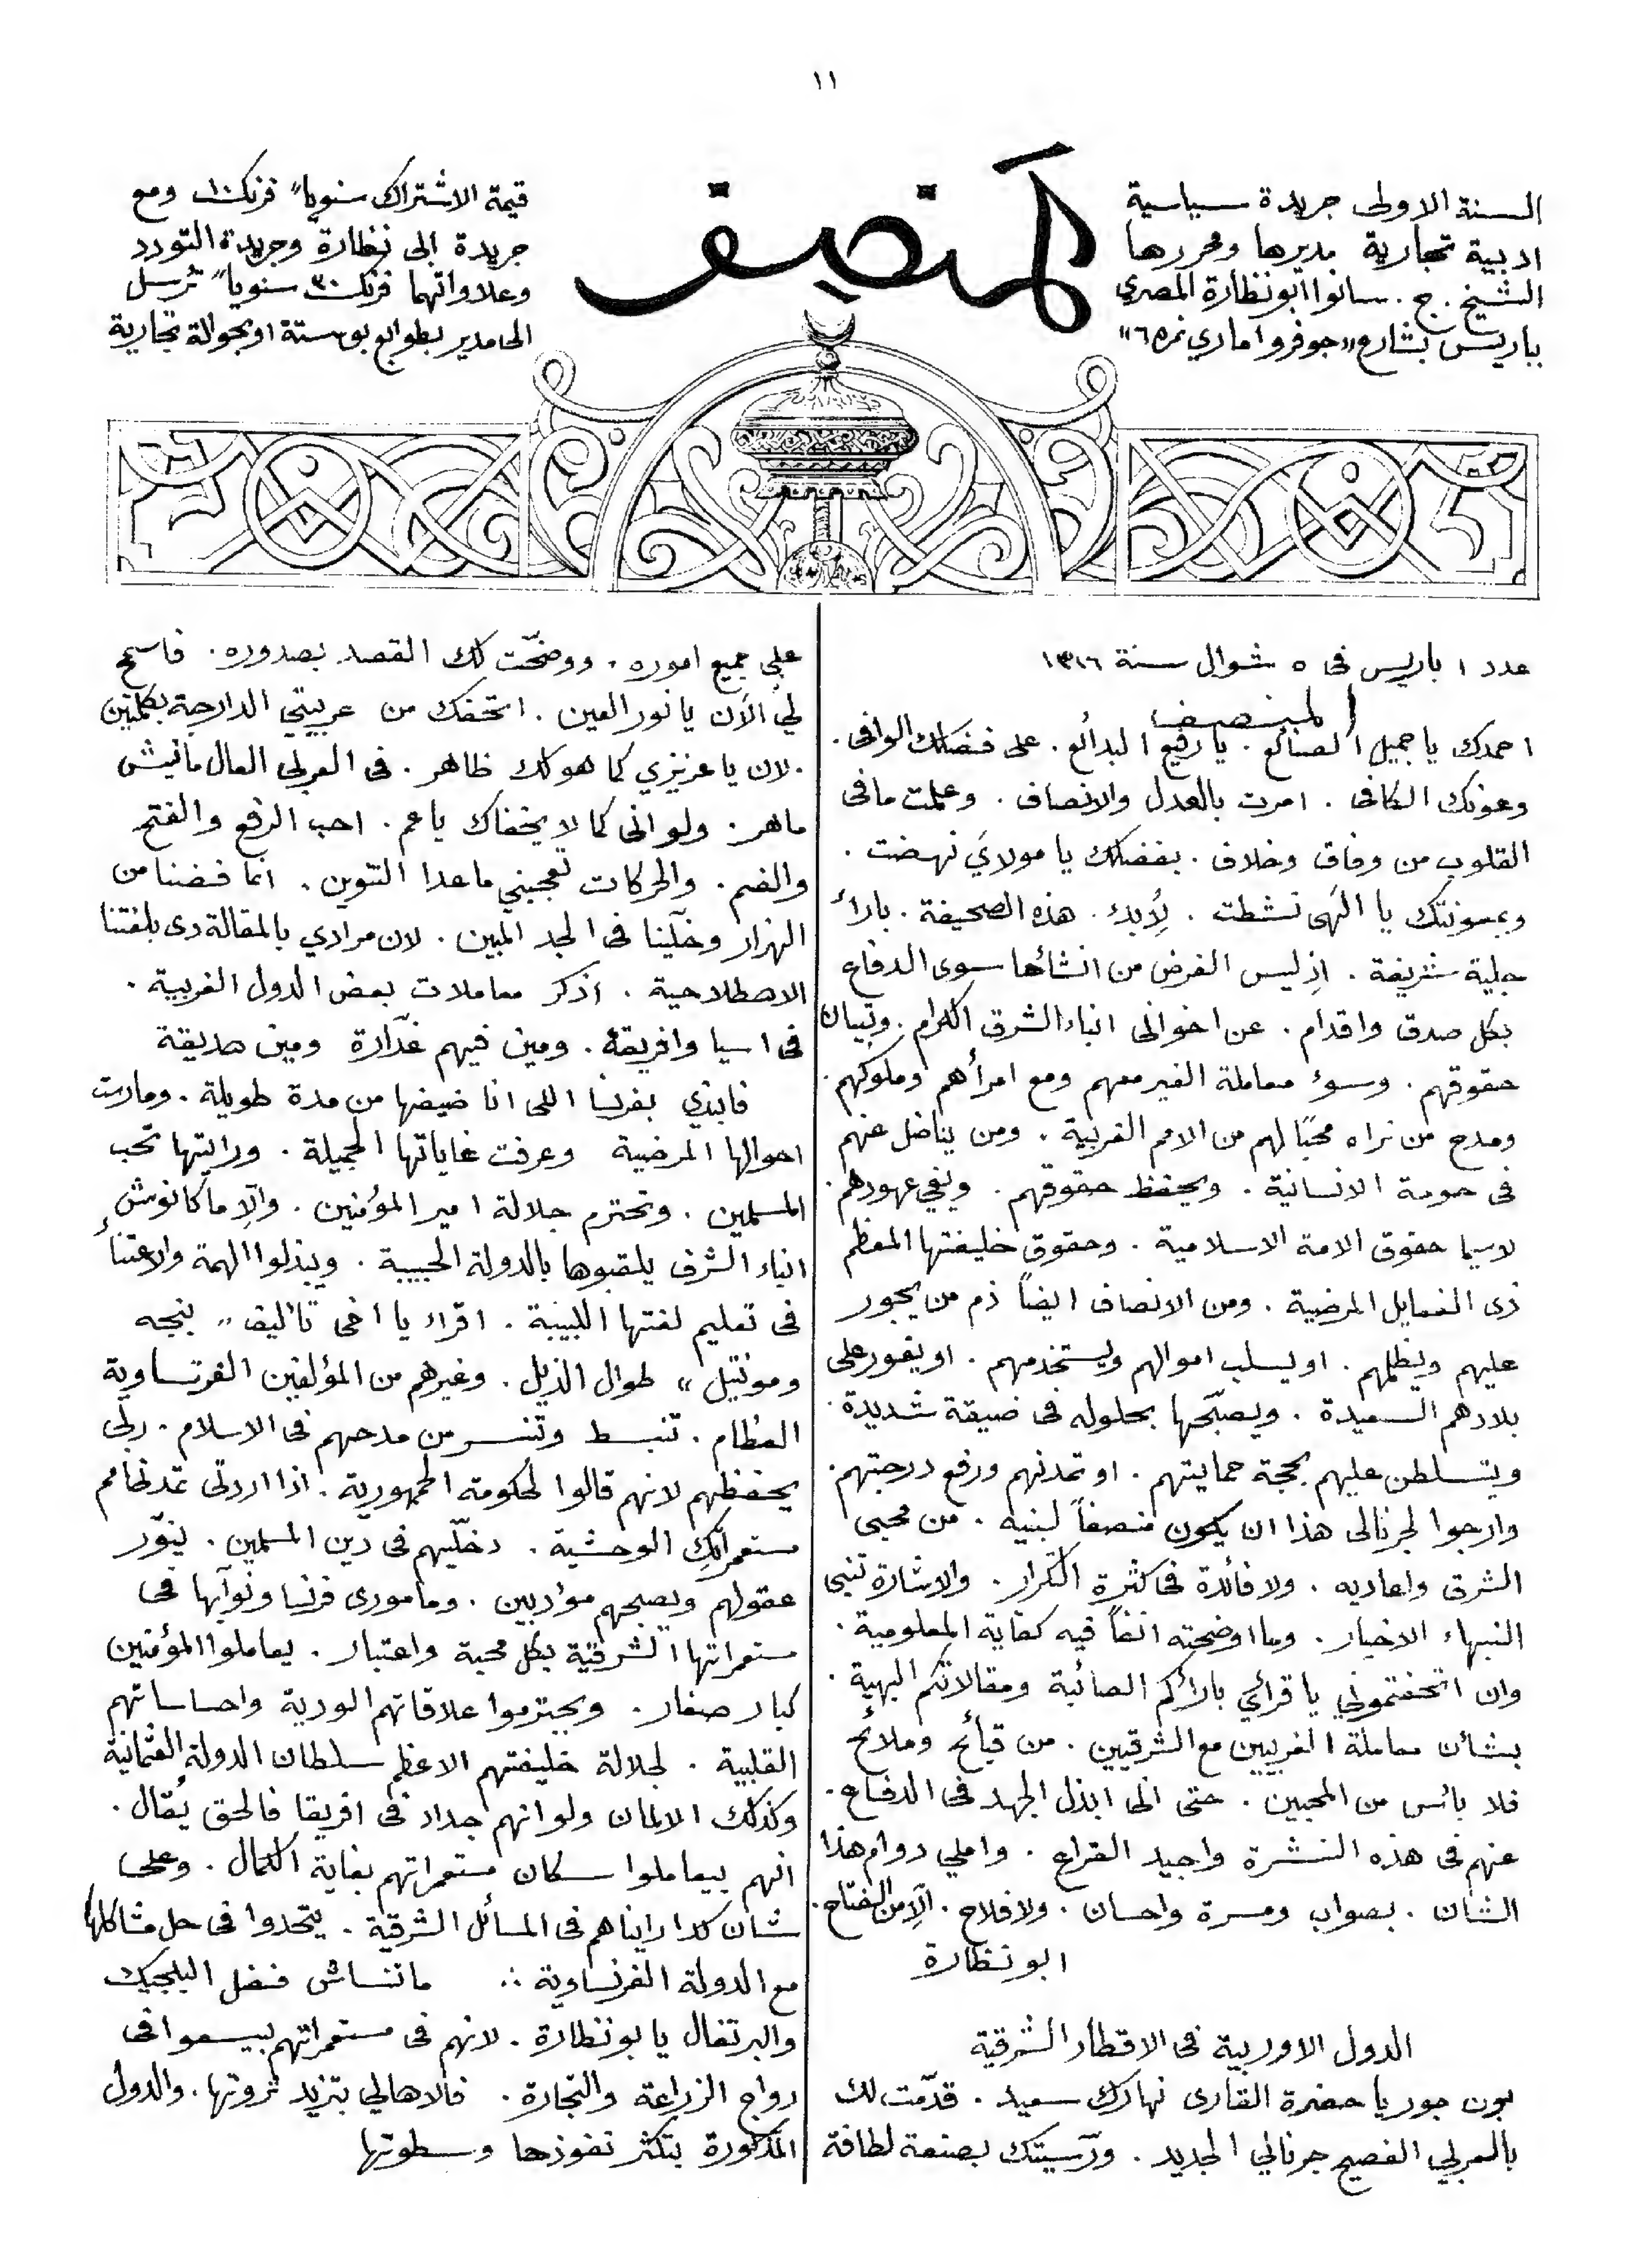 ١١
المنصف
السنة الاولى جريدة سياسية
ادبية تجارية مديرها ومحررها
الشيخ . ج . سانوا ابو نظارة المصري
بباريس بشارع «جوفروا ماري نمره ٦»
قيمة الاشتراك سنوياً فرنك ١٠ ومع
جريدة ابى نظارة وجريدة التودد
وعلاواتهما فرنك ٣٠ سنوياً ترسل
الى مدير بطوابع بوستة او بحوالة تجارية
عدد ١ باريس فى ٥ شوال سنة ١٣١٦
المنصف
احمدك يا جميل الصنائع . يا رفيع البدائع . على فضلك الوافى .
وعونك الكافى . امرت بالعدل والانصاف . وعلمت ما فى
القلوب من وفاق وخلاف . بفضلك يا مولاي نهضت .
وبمعونتك يا الهى نشطت . لأبدء . هذه الصحيفة . باراء
جلية شريفة . اذ ليس الغرض من انشائها سوى الدفاع
بكل صدق واقدام . عن اخوانى ابناء الشرق الكرام . وتبيان
حقوقهم . وسوء معاملة الغير معهم ومع امرأهم وملوكهم .
ومدح من نراه محبّا لهم من الامم الغربية . ومن يناضل عنهم
فى حومة الانسانية . ويحفظ حقوقهم . ويفي عهودهم .
لاسيما حقوق الامة الاسلامية . وحقوق خليفتها المعظم
ذى الفعايل المرضية . ومن الانصاف ايضاً ذم من يجور
عليهم ويظلمهم . او يسلب اموالهم ويستخدمهم . او يغور على
بلادهم السعيدة . ويصبّحها بحلوله فى ضيقة شديدة .
ويتسلطن عليهم بحجة حمايتهم . او تمدنهم ورفع درجتهم .
وارجوا لجرنالى هذا ان يكون منصفاً لبنيه . من محبى
الشرق واعاديه . ولا فائدة فى كثرة التكرار . والاشارة تنبى
النبهاء الاخبار . وما اوضحته انفاً فيه كفاية المعلومية .
وان اتحفتموني يا قرائي بارائكم الصائبة ومقالاتكم البهية .
بشأن معاملة الغربيين مع الشرقيين . من قبائح وملائح
فلا بائس من المحبين . حتى انى ابذل الجهد فى الدفاع .
عنهم فى هذه النشرة واجيد القراع . واملي دوام هذا
الشأن . بصواب ومسرة واحسان . ولا فلاح . الّا من الفتاح .
ابو نظارة
الدول الاوربية فى الاقطار الشرقية
بون جور يا حضرة القارى نهارك سعيد . قدّمت لك
بالعربي الفصيح جرنالي الجديد . ورسيتك بصنعة لطافة
على جميع اموره . ووضّحت لك القصد بصدوره . فاسمح
لي الآن يا نور العين . اتحفك من عربيتي الدارجة بكلمتين
. لان يا عزيزي كما هو لك ظاهر . فى العربى العال مانيش
ماهر . ولو انى كما لا يخفاك يا عم . احب الرفع والفتح
والضم . والحركات تعجبني ما عدا التنوين . انما فضنا من
الهزار وخلّينا فى الجد المبين . لان مرادي بالمقالة دى بلغتنا
الاصطلاحية . اذكر معاملات بعض الدول الغربية .
فى اسيا وافريقه . ومين فيهم غدّارة ومين صديقة
فابتدي بفرنسا اللى انا ضيفها من مدة طويلة . ومارست
احوالها المرضية وعرفت غاياتها الجميلة . ورايتها تحب
المسلمين . وتحترم جلالة امير المؤمنين . والّا ما كانوش
ابناء الشرق يلقبوها بالدولة الحبيبة . ويبذلوا الهمة والاعتناء
فى تعليم لغتها اللبيبة . اقراء يا اخى تأليف " بنجه
ومونتيل " طوال الذيل . وغيرهم من المؤلفين الفرنساوية
العظام . تنبسط وتنسر من مدحهم فى الاسلام . ربّى
يحفظهم لانهم قالوا لحكومة الجمهورية . اذا اردتى تمدنى امم
مستعمراتك الوحشية . دخلّيهم فى دين المسلمين . ينوّر
عقولهم ويصبحهم مؤدبين . ومامورى فرنسا ونوابها فى
مستعمراتها الشرقية بكل محبة واعتبار . يعاملوا المؤمنين
كبار صغار . ويحترموا علاقاتهم الودية واحساساتهم
القلبية . لجلالة خليفتهم الاعظم سلطان الدولة العثمانية
وكذلك الالمان ولو انهم جداد فى افريقا فالحق يُقال .
انهم بيعاملوا سكان مستعمراتهم بغاية الكمال . وعلى
شان كدا رايناهم فى المسائل الشرقية . يتحدوا فى حل مشاكلها
مع الدولة الفرنساوية ∴ ماتنساش فضل البلجيك
والبرتغال يا بو نظارة . لانهم فى مستعمراتهم بيسعوا فى
رواج الزراعة والتجارة . فالاهالي بتزيد ثروتها . والدول
المذكورة بتكثر نفوذها وسطوتها